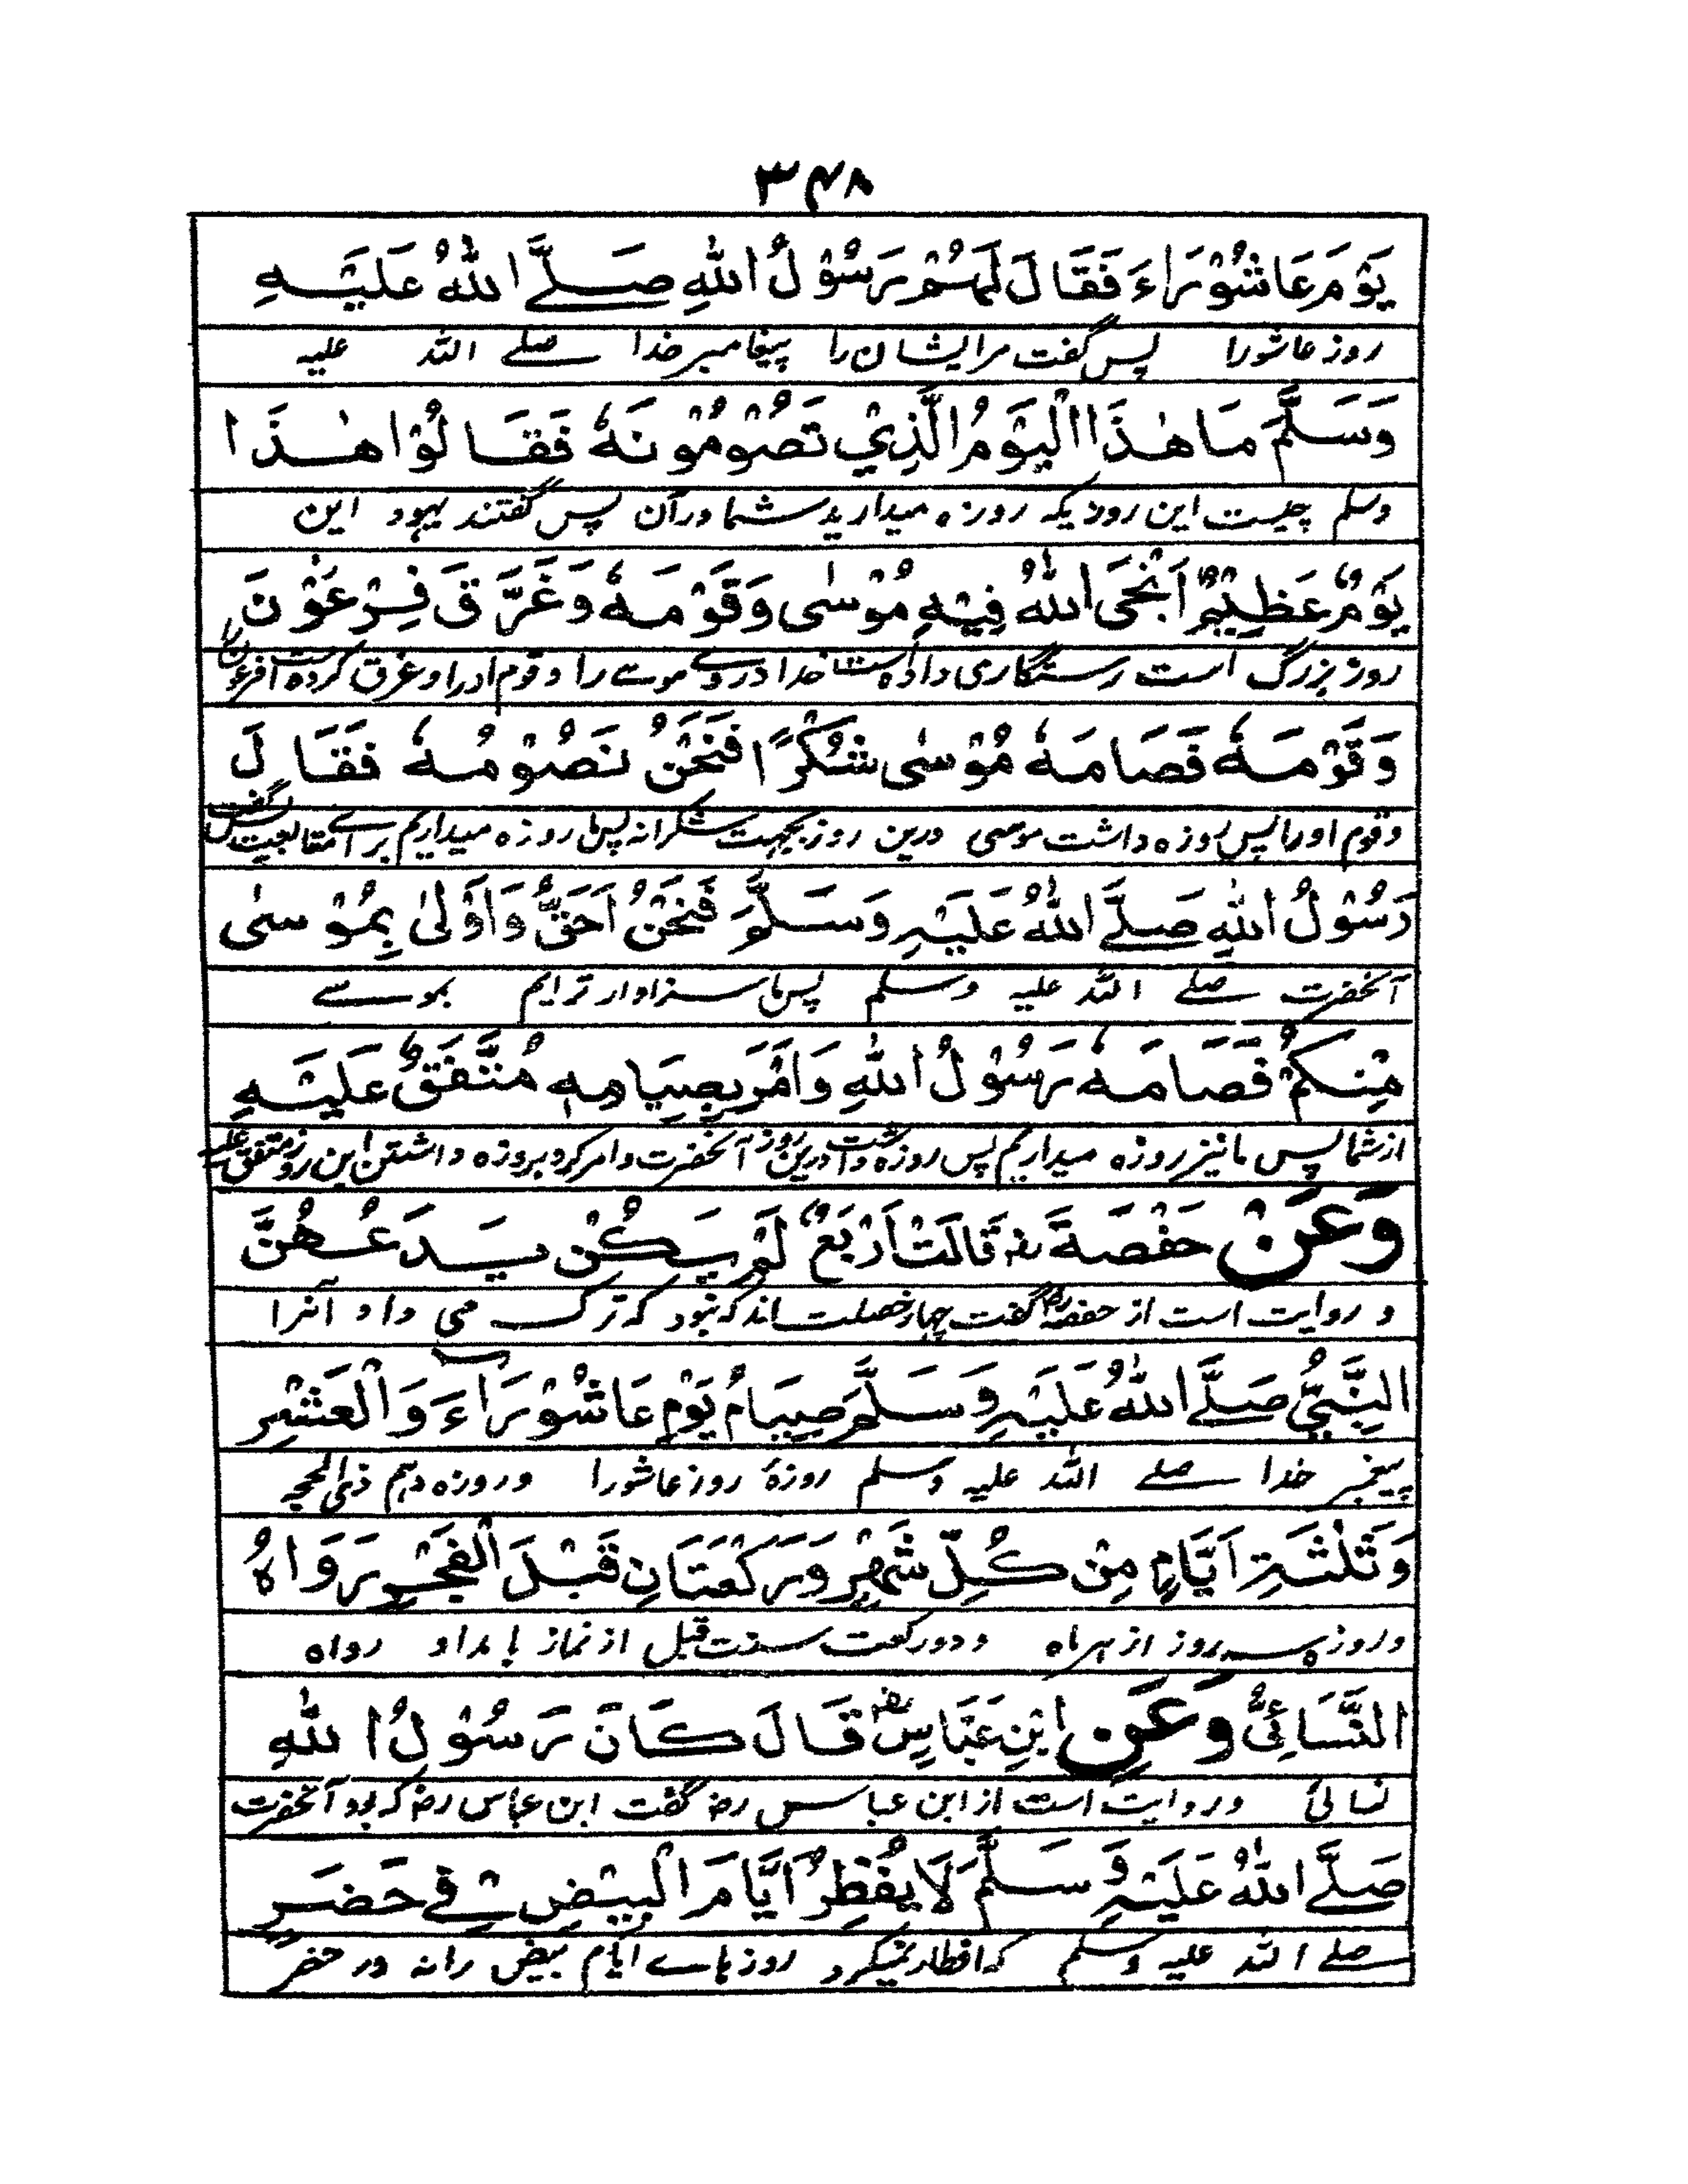 ۳۴۸
يَوْمَ عَاشُوْرَاءَ فَقَالَ لَهُمْ رَسُوْلُ اللّٰهِ صَلَّے اللّٰهُ عَلَيْهِ
روز عاشورا پس گفت مر ایشان را پیغامبر خدا صلے اللّٰه علیه
وَسَلَّمَ مَا هٰذَا الْيَوْمُ الَّذِيْ تَصُوْمُوْنَهٗ فَقَالُوْا هٰذَا
وسلم چیست این روزیکه روزه میدارید شما درآن پس گفتند یهود این
يَوْمٌ عَظِيْمٌ اَنْجَى اللّٰهُ فِيْهِ مُوْسٰى وَقَوْمَهٗ وَغَرَّقَ فِرْعَوْنَ
روز بزرگ است رستگاری داده است خدا دروے موسے را و قوم اورا و غرق کرده است فرعون
وَقَوْمَهٗ فَصَامَهٗ مُوْسٰى شُكْرًا فَنَحْنُ نَصُوْمُهٗ فَقَالَ
وقوم اورا پس روزه داشت موسی درین روز بجهت شکرانه پس ما روزه میداریم براے متابعت پس گفت
رَسُوْلُ اللّٰهِ صَلَّے اللّٰهُ عَلَيْهِ وَسَلَّمَ فَنَحْنُ اَحَقُّ وَاَوْلٰى بِمُوْسٰى
آنحضرت صلے اللّٰه علیه وسلم پس ما سزاوار ترایم بموسے
مِنْكُمْ فَصَامَهٗ رَسُوْلُ اللّٰهِ وَاَمَرَ بِصِيَامِهٖ مُتَّفَقٌ عَلَيْهِ
از شما پس ما نیز روزه میداریم پس روزه داشت درین روز آنحضرت و امر کرد بروزه داشتن این روز متفق علیه
وَعَنْ حَفْصَةَ رضہ قَالَتْ اَرْبَعٌ لَمْ يَكُنْ يَدَعُهُنَّ
و روایت است از حفصه رض گفت چهار خصلت اند که نبود که ترک می داد آنرا
النَّبِيُّ صَلَّے اللّٰهُ عَلَيْهِ وَسَلَّمَ صِيَامُ يَوْمِ عَاشُوْرَاءَ وَالْعَشْرِ
پیغمبر خدا صلے اللّٰه علیه وسلم روزهٔ روز عاشورا و روزه دهم ذی الحجه
وَثَلٰثَةِ اَيَّامٍ مِنْ كُلِّ شَهْرٍ وَرَكْعَتَانِ قَبْلَ الْفَجْرِ رَوَاهُ
و روزه سه روز از هر ماه و دو رکعت سنت قبل از نماز بامداد رواه
النَّسَائِيُّ وَعَنِ ابْنِ عَبَّاسٍ رضہ قَالَ كَانَ رَسُوْلُ اللّٰهِ
نسائی و روایت است از ابن عباس رضہ گفت ابن عباس رضہ که بود آنحضرت
صَلَّے اللّٰهُ عَلَيْهِ وَسَلَّمَ لَا يُفْطِرُ اَيَّامَ الْبِيْضِ فِے حَضَرٍ
صلے اللّٰه علیه وسلم که افطار نمیکرد روز هاے ایام بیض را نه در حضر